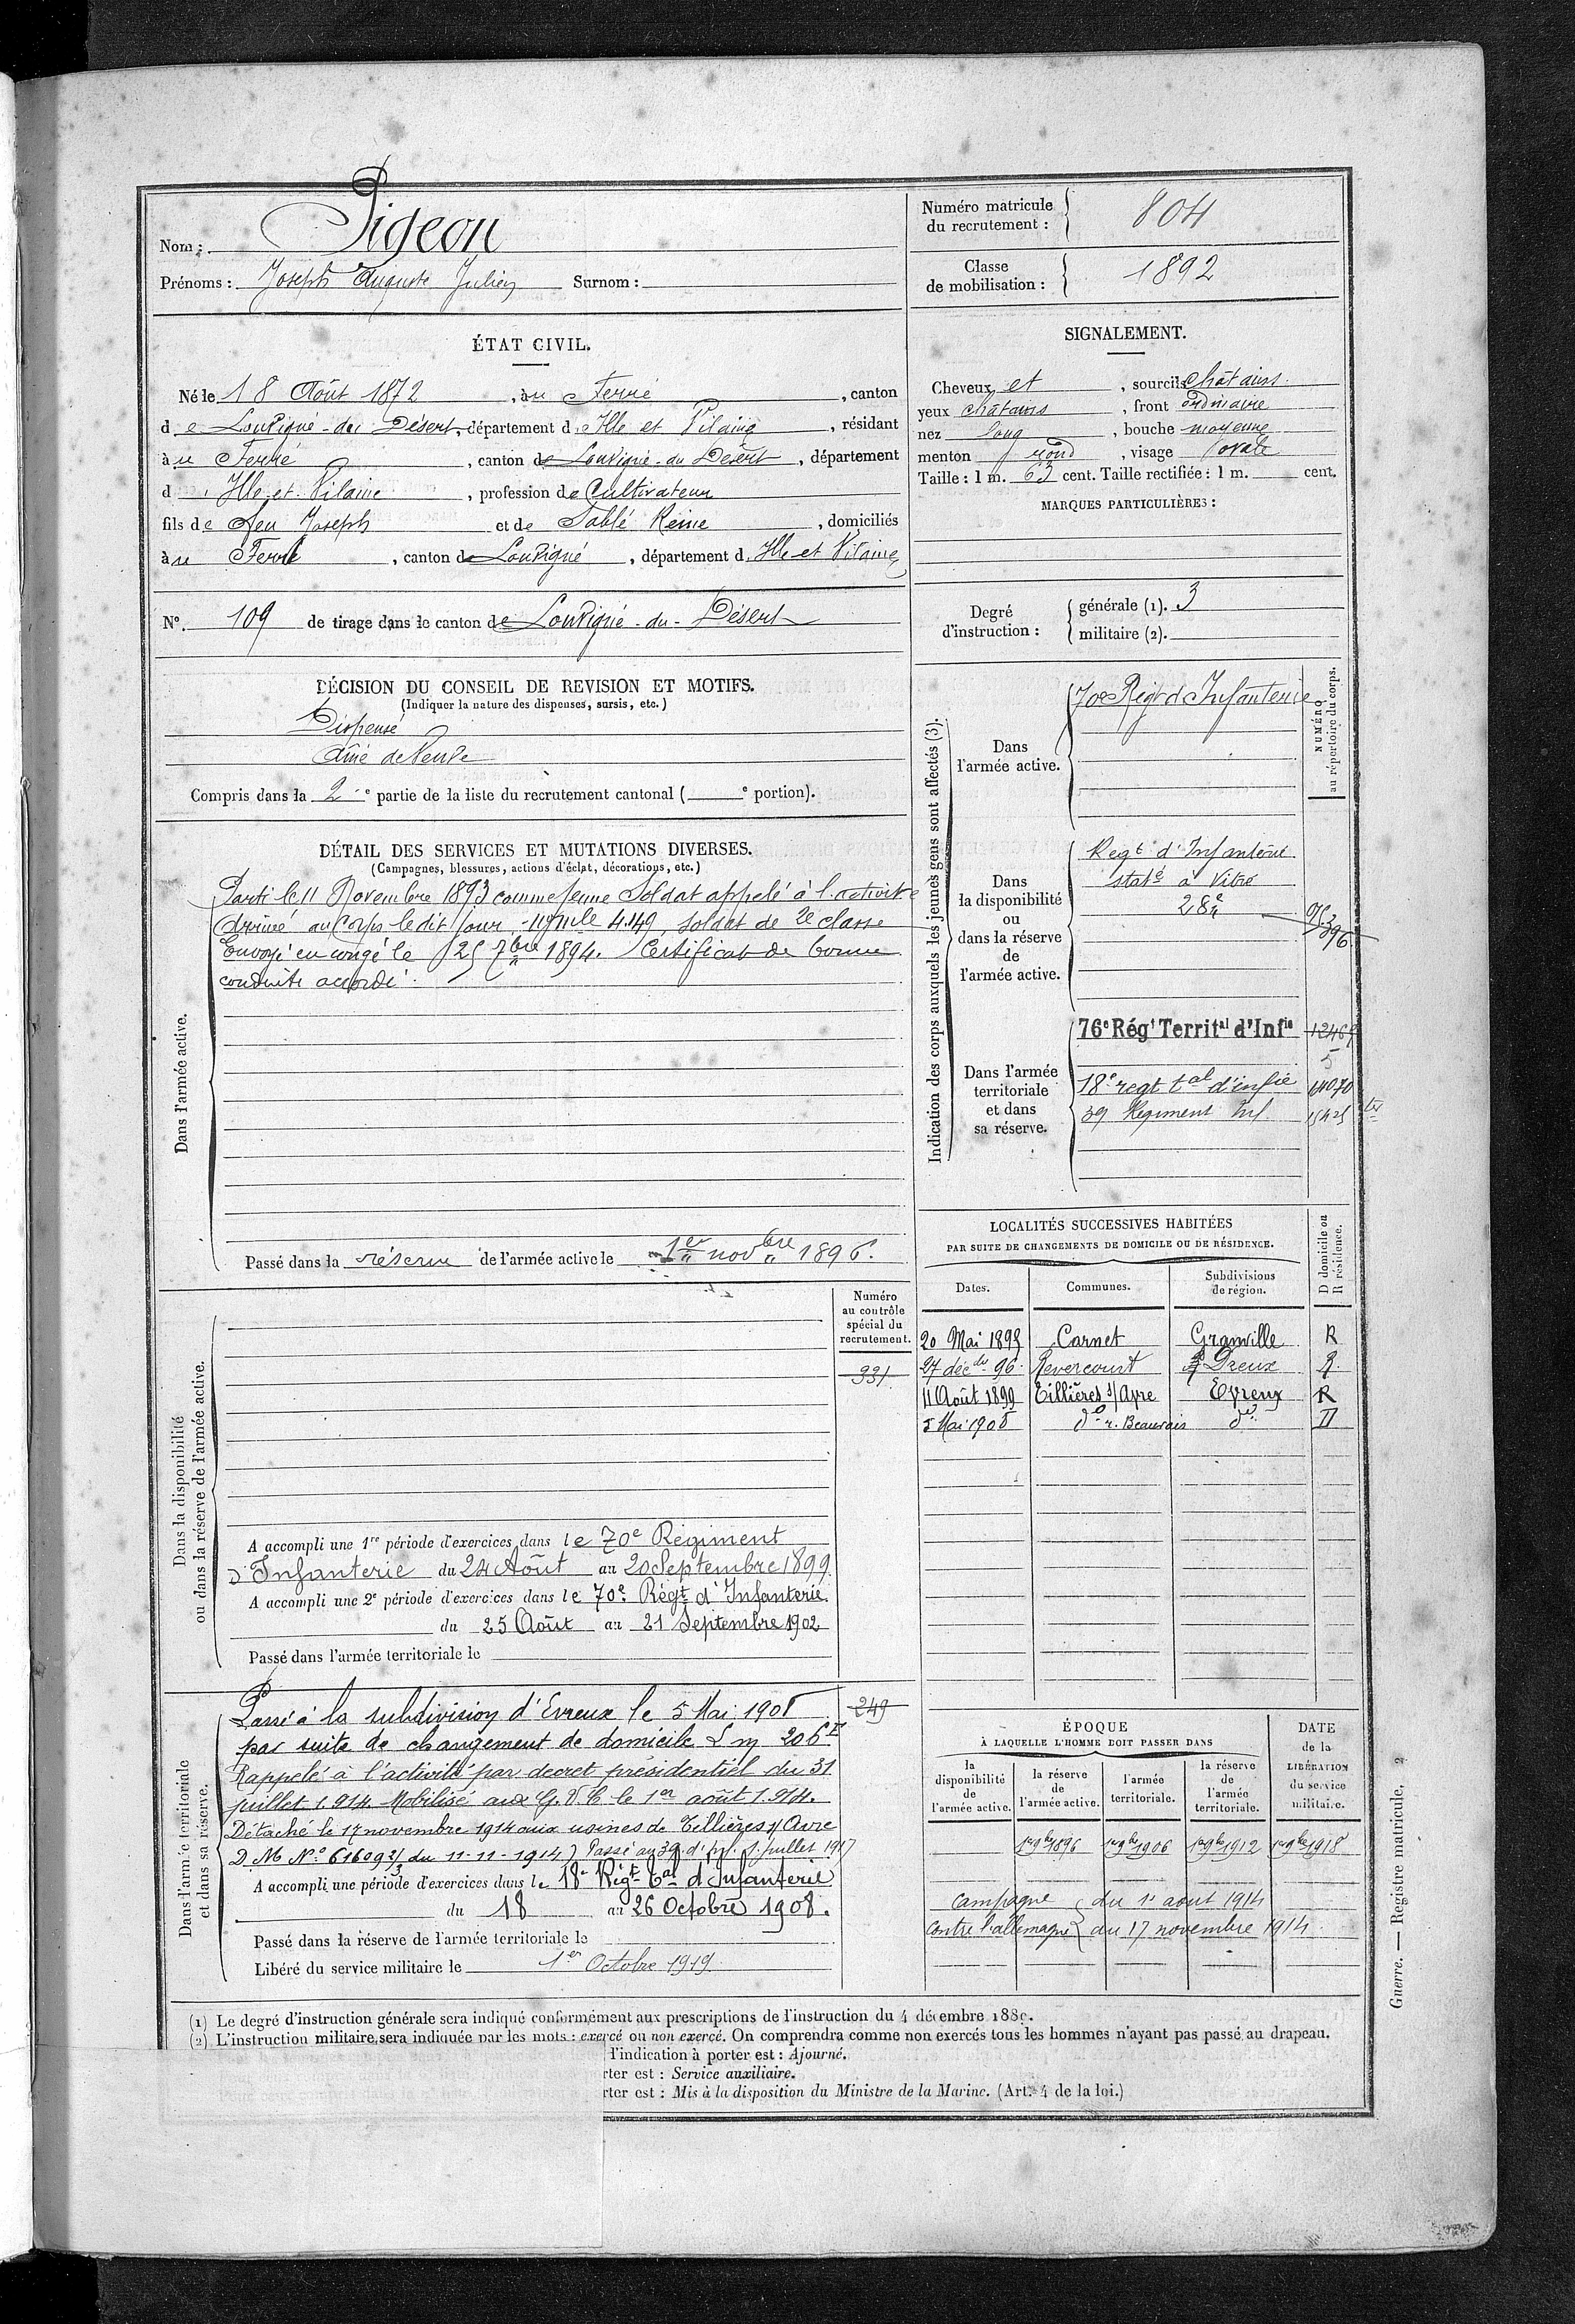 Nom : Pigeon
Prénoms : Joseph Auguste Julien Surnom :
Numéro matricule du recrutement : 804
Classe de mobilisation : 1892
ÉTAT CIVIL.
Né le 18 Août 1872, à u Ferré, canton
d e Louvigné-du-Désert, département d'Ille et Vilaine, résidant
à u Ferré, canton de Louvigné-du Désert, département
d'Ille et Vilaine, profession de Cultivateur
fils de feu Joseph et de Sablé Reine, domiciliés
à u Ferré, canton de Louvigné, département d'Ille et Vilaine
N° 109 de tirage dans le canton de Louvigné-du-Désert
SIGNALEMENT.
Cheveux et, sourcils châtains
yeux châtains, front ordinaire
nez long, bouche moyenne
menton rond, visage ovale
Taille : 1 m. 63 cent. Taille rectifiée : 1 m. cent.
MARQUES PARTICULIÈRES :
Degré d'instruction : générale (1). 3
militaire (2).
DÉCISION DU CONSEIL DE REVISION ET MOTIFS.
(Indiquer la nature des dispenses, sursis, etc.)
Dispensé
Aîné de Veuve
Compris dans la 2e partie de la liste du recrutement cantonal ( e portion).
DÉTAIL DES SERVICES ET MUTATIONS DIVERSES.
(Campagnes, blessures, actions d'éclat, décorations, etc.)
Dans l'armée active.
Parti le 11 Novembre 1893 comme jeune Soldat appelé à l'activité
Arrivé au Corps le dit jour, n° mle 4449, soldat de 2e classe
Envoyé en congé le 25 7bre 1894. Certificat de bonne
conduite accordé.
Passé dans la réserve de l'armée active le 1er novbre 1896.
Indication des corps auxquels les jeunes gens sont affectés (3).
NUMÉRO au répertoire du corps.
Dans l'armée active.
70e Régt d'Infanterie
Dans la disponibilité ou dans la réserve de l'armée active.
Régt d'Infanterie
staté à Vitré
Dans l'armée territoriale et dans sa réserve.
76e Régt Territal d'Infie
18e regt tal d'infie 14070
39 Régiment Inf
LOCALITÉS SUCCESSIVES HABITÉES
PAR SUITE DE CHANGEMENTS DE DOMICILE OU DE RÉSIDENCE.
Dates. Communes. Subdivisions de région. D domicile ou R résidence.
20 Mai 1895 Carnet Granville R
27 déc. 96 Revercourt Dreux R.
11 Août 1899 Tillières s/ Avre Evreux R
5 Mai 1908 do r. Beauvais do D
Dans la disponibilité ou dans la réserve de l'armée active.
Numéro au contrôle spécial du recrutement.
331
A accompli une 1re période d'exercices dans le 70e Régiment
d'Infanterie du 24 Août au 20 Septembre 1899
A accompli une 2e période d'exercices dans le 70e Régt d'Infanterie
du 25 Août au 21 Septembre 1902
Passé dans l'armée territoriale le
Dans l'armée territoriale et dans sa réserve.
249
Passé à la subdivision d'Evreux le 5 Mai 1908
par suite de changement de domicile
Rappelé à l'activité par decret présidentiel du 31
juillet 1914. Mobilisé aux G.V.C le 1er août 1914.
Détaché le 17 novembre 1914 aux usines de Tillières s/ Avre
D M N° 61609 2/3 du 11-11-1914) Passé au 39 d'Inf. juillet 1917
A accompli une période d'exercices dans le 18e Régt tal d'Infanterie
du 18 au 26 Octobre 1908.
Passé dans la réserve de l'armée territoriale le
Libéré du service militaire le 1er Octobre 1919
ÉPOQUE
À LAQUELLE L'HOMME DOIT PASSER DANS
la disponibilité de l'armée active. la réserve de l'armée active. l'armée territoriale. la réserve de l'armée territoriale.
DATE de la LIBÉRATION du service militaire.
1er 9bre 1896 1er 9bre 1906 1er 9bre 1912 1er 9bre 1918
Campagne du 1er aout 1914
contre l'allemagne au 17 novembre 1914
(1) Le degré d'instruction générale sera indiqué conformément aux prescriptions de l'instruction du 4 décembre 1889.
(2) L'instruction militaire sera indiquée par les mots : exercé ou non exercé. On comprendra comme non exercés tous les hommes n'ayant pas passé au drapeau.
l'indication à porter est : Ajourné.
rter est : Service auxiliaire.
rter est : Mis à la disposition du Ministre de la Marine. (Art. 4 de la loi.)
Guerre. — Registre matricule. 2